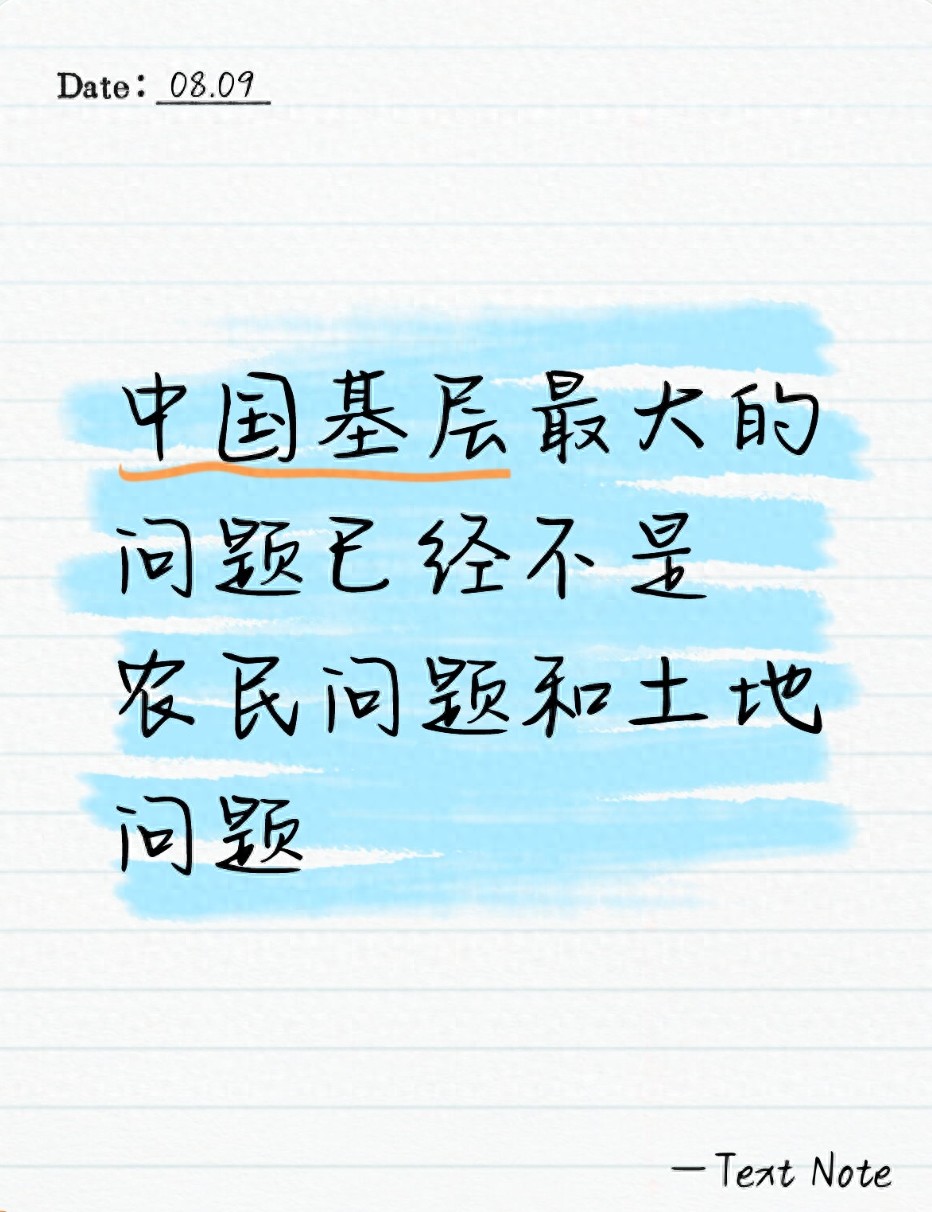 Date: 08.09
中国基层最大的
问题已经不是
农民问题和土地
问题
—Text Note